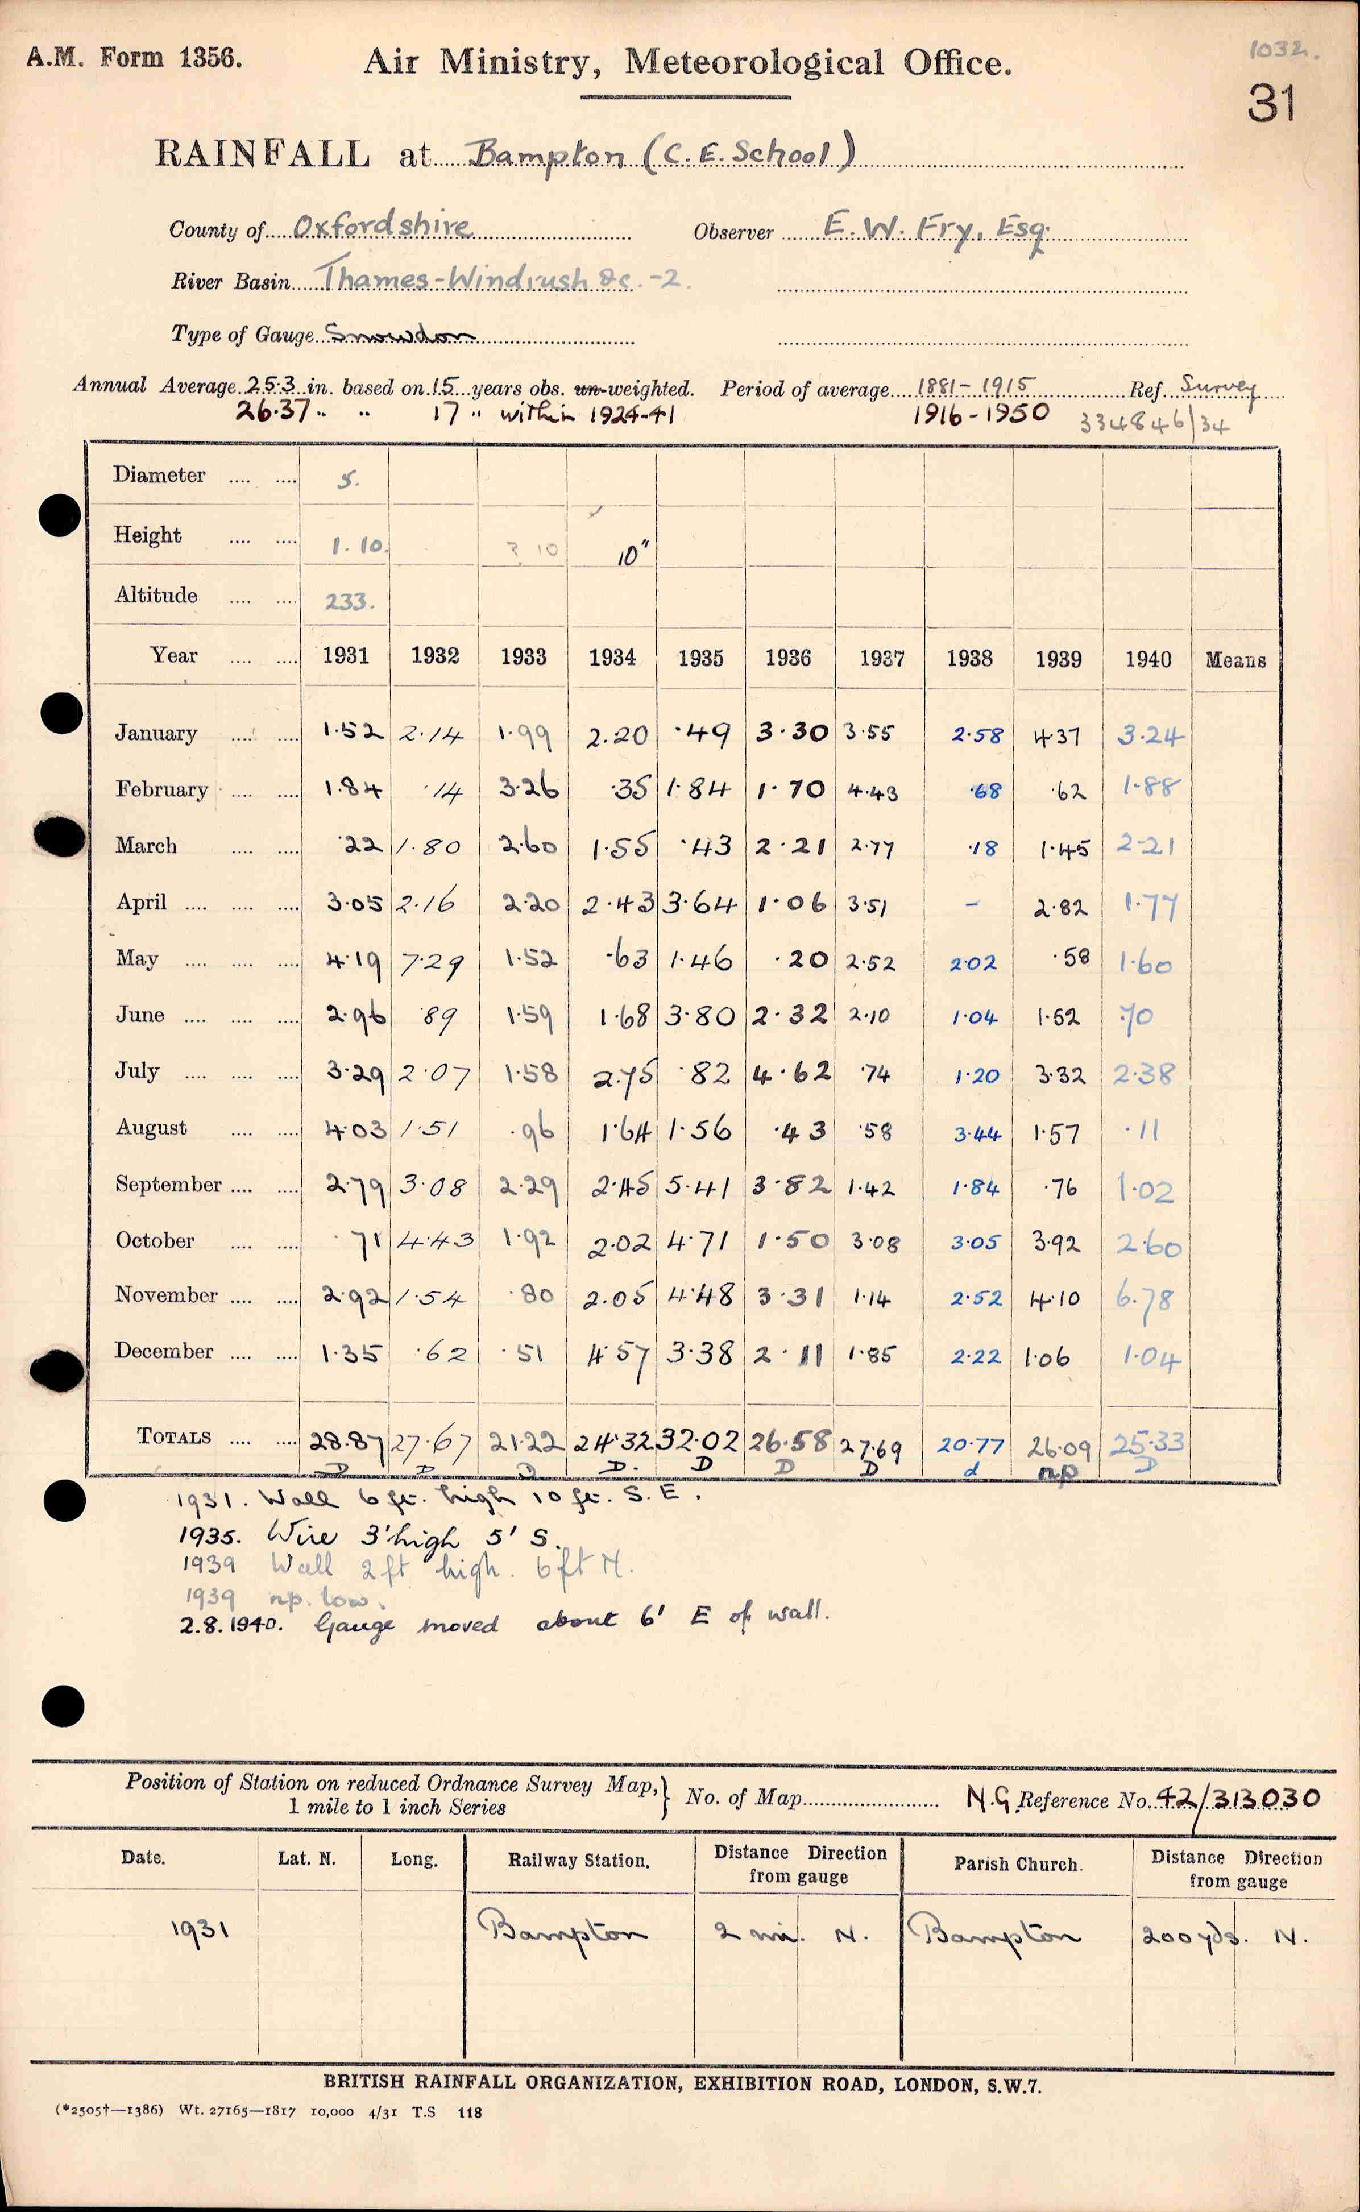 A.M. Form 1356.
Air Ministry, Meteorological Office.
1032.
31
RAINFALL at Bampton (C. E. School)
County of Oxfordshire Observer E. W. Fry, Esq.
River Basin Thames-Windrush &c. -2.
Type of Gauge Snowdon
Annual Average 25.3 in. based on 15 years obs. un-weighted. Period of average 1881-1915 Ref. Survey
26.37 " " 17 " within 1924-41 1916-1950 334846/34
Diameter .... .... 5.
Height .... .... 1. 10. ? 10 10"
Altitude .... .... 233.
Year .... .... 1931 1932 1933 1934 1935 1936 1937 1938 1939 1940 Means
January .... .... 1.52 2.14 1.99 2.20 .49 3.30 3.55 2.58 4.37 3.24
February .... .... 1.84 .14 3.26 .35 1.84 1.70 4.43 .68 .62 1.88
March .... .... .22 1.80 2.60 1.55 .43 2.21 2.77 .18 1.45 2.21
April .... .... .... 3.05 2.16 2.20 2.43 3.64 1.06 3.51 - 2.82 1.77
May .... .... .... 4.19 7.29 1.52 .63 1.46 .20 2.52 2.02 .58 1.60
June .... .... .... 2.96 .89 1.59 1.68 3.80 2.32 2.10 1.04 1.52 .70
July .... .... .... 3.29 2.07 1.58 2.75 .82 4.62 .74 1.20 3.32 2.38
August .... .... 4.03 1.51 .96 1.64 1.56 .43 .58 3.44 1.57 .11
September .... .... 2.79 3.08 2.29 2.45 5.41 3.82 1.42 1.84 .76 1.02
October .... .... .71 4.43 1.92 2.02 4.71 1.50 3.08 3.05 3.92 2.60
November .... .... 2.92 1.54 .80 2.05 4.48 3.31 1.14 2.52 4.10 6.78
December .... .... 1.35 .62 .51 4.57 3.38 2.11 1.85 2.22 1.06 1.04
TOTALS .... .... 28.87 27.67 21.22 24.32 32.02 26.58 27.69 20.77 26.09 25.33
D D D D. D D D d np D
1931. Wall 6 ft. high 10 ft. S.E.
1935. Wire 3' high 5' S.
1939 Wall 2 ft high. 6 ft N.
1939 np. low.
2.8.1940. Gauge moved about 6' E of wall.
Position of Station on reduced Ordnance Survey Map,} No. of Map N.G Reference No. 42/313030
1 mile to 1 inch Series
Date. Lat. N. Long. Railway Station. Distance Direction from gauge Parish Church. Distance Direction from gauge
1931 Bampton 2 mi. N. Bampton 200 yds. N.
BRITISH RAINFALL ORGANIZATION, EXHIBITION ROAD, LONDON, S.W.7.
(*2505†—1386) Wt. 27165—1817 10,000 4/31 T.S 118